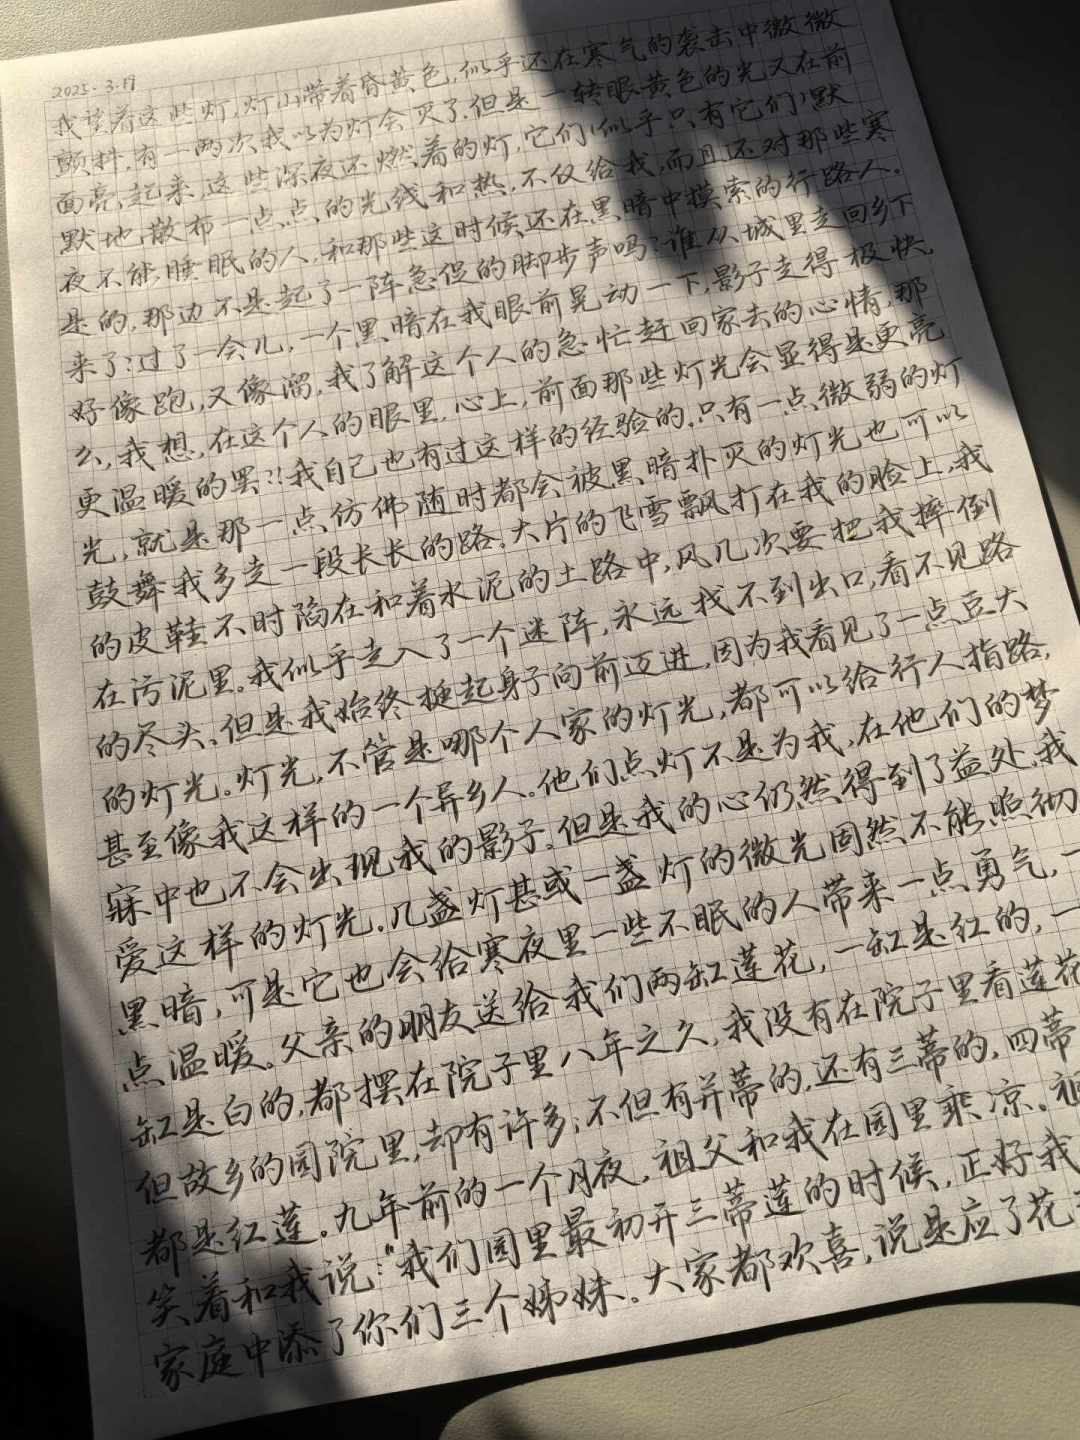 2025.3.17
我望着这些灯,灯山带着昏黄色,似乎还在寒气的袭击中微微
颤抖,有一两次我以为灯会灭了.但是一转眼黄色的光又在前
面亮起来,这些深夜还燃着的灯,它们(似乎只有它们)默
默地散布一点点的光线和热,不仅给我,而且还对那些寒
夜不能睡眠的人,和那些这时候还在黑暗中摸索的行路人.
是的,那边不是起了一阵急促的脚步声吗?谁从城里走回乡下
来了?过了一会儿,一个黑暗在我眼前晃动一下,影子走得极快,
好像跑,又像溜,我了解这个人的急忙赶回家去的心情,那
么,我想,在这个人的眼里,心上,前面那些灯光会显得是更亮
更温暖的罢?!我自己也有过这样的经验的.只有一点微弱的灯
光,就是那一点仿佛随时都会被黑暗扑灭的灯光也可以
鼓舞我多走一段长长的路。大片的飞雪飘打在我的脸上,我
的皮鞋不时陷在和着水泥的土路中,风几次要把我摔倒
在污泥里。我似乎走入了一个迷阵,永远找不到出口,看不见路
的尽头。但是我始终挺起身子向前迈进,因为我看见了一点豆大
的灯光。灯光,不管是哪个人家的灯光,都可以给行人指路,
甚至像我这样的一个异乡人。他们点灯不是为我,在他们的梦
寐中也不会出现我的影子.但是我的心仍然得到了益处.我
爱这样的灯光.几盏灯甚或一盏灯的微光固然不能照彻
黑暗,可是它也会给寒夜里一些不眠的人带来一点勇气,一
点温暖。父亲的朋友送给我们两缸莲花,一缸是红的,一
缸是白的,都摆在院子里八年之久,我没有在院子里看莲花
但故乡的园院里,却有许多;不但有并蒂的,还有三蒂的,四蒂
都是红莲。九年前的一个月夜,祖父和我在园里乘凉。祖
笑着和我说:"我们园里最初开三蒂莲的时候,正好我
家庭中添了你们三个姊妹。大家都欢喜,说是应了花